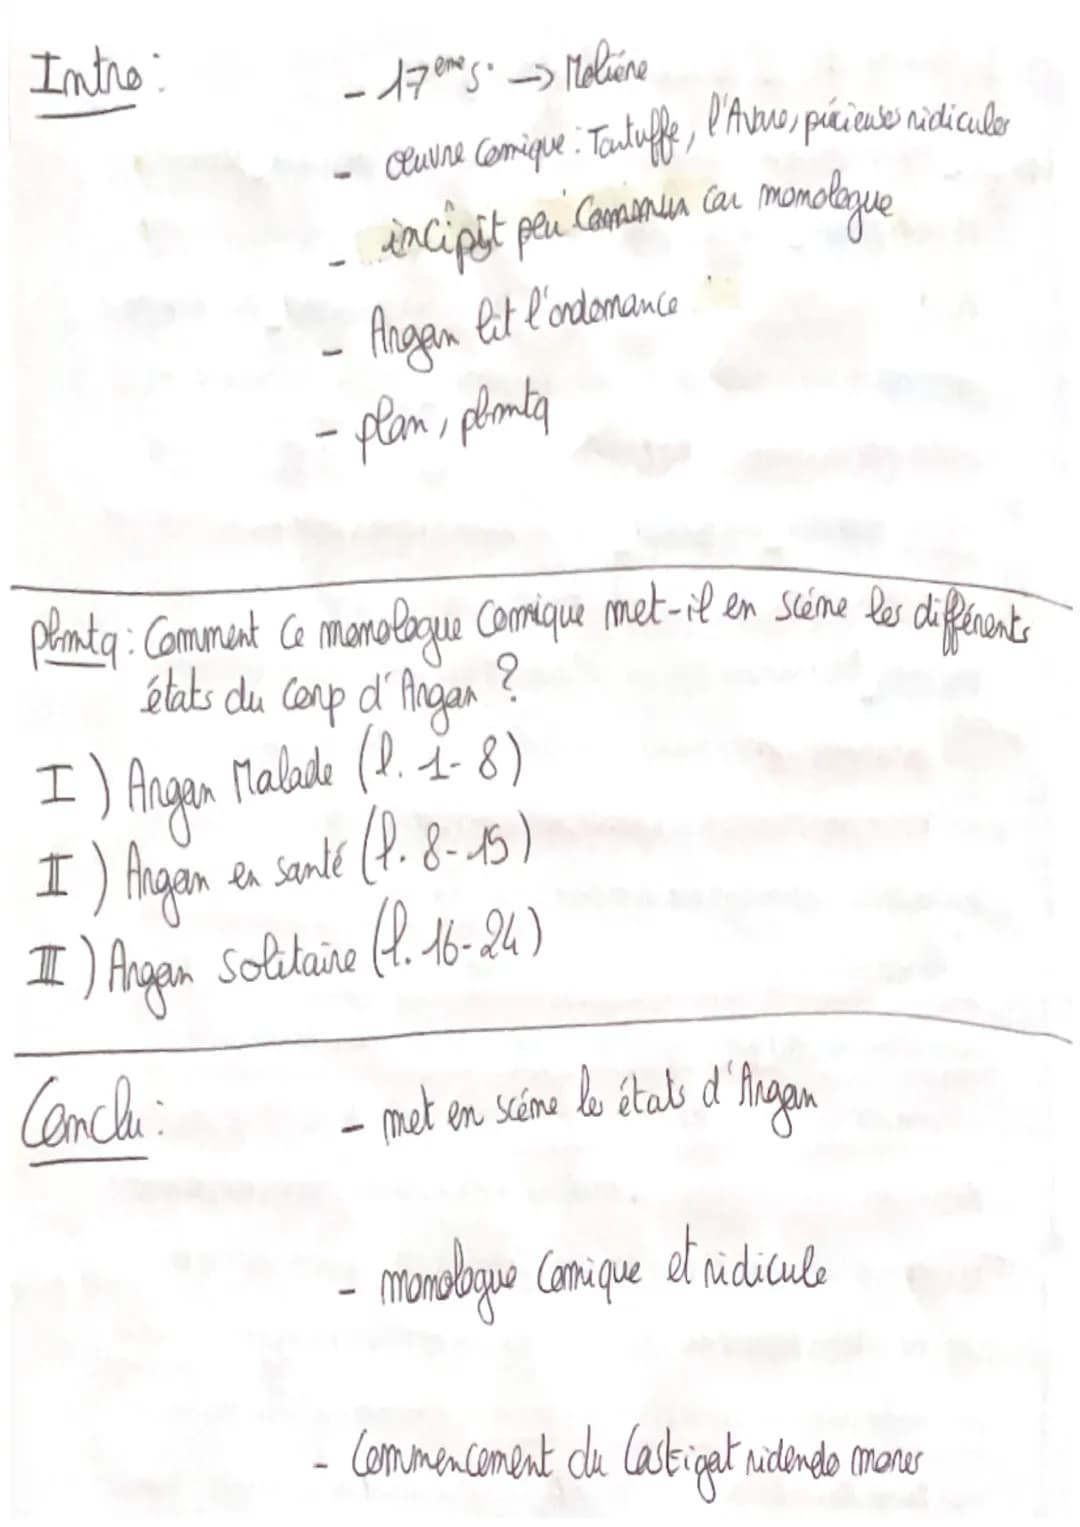 Intro :
- 17ème s. -> Molière
- œuvre comique : Tartuffe, l'Avare, précieuses ridicules
- incipit peu commun car monologue
- Argan lit l'ordonnance
- plan, pbmtq
pbmtq : Comment ce monologue comique met-il en scène les différents
états du corp d'Argan ?
I) Argan Malade (l. 1-8)
II) Argan en santé (l. 8-15)
III) Argan solitaire (l. 16-24)
Conclu :
- met en scène les états d'Argan
- monologue comique et ridicule
- Commencement du Castigat ridendo mores